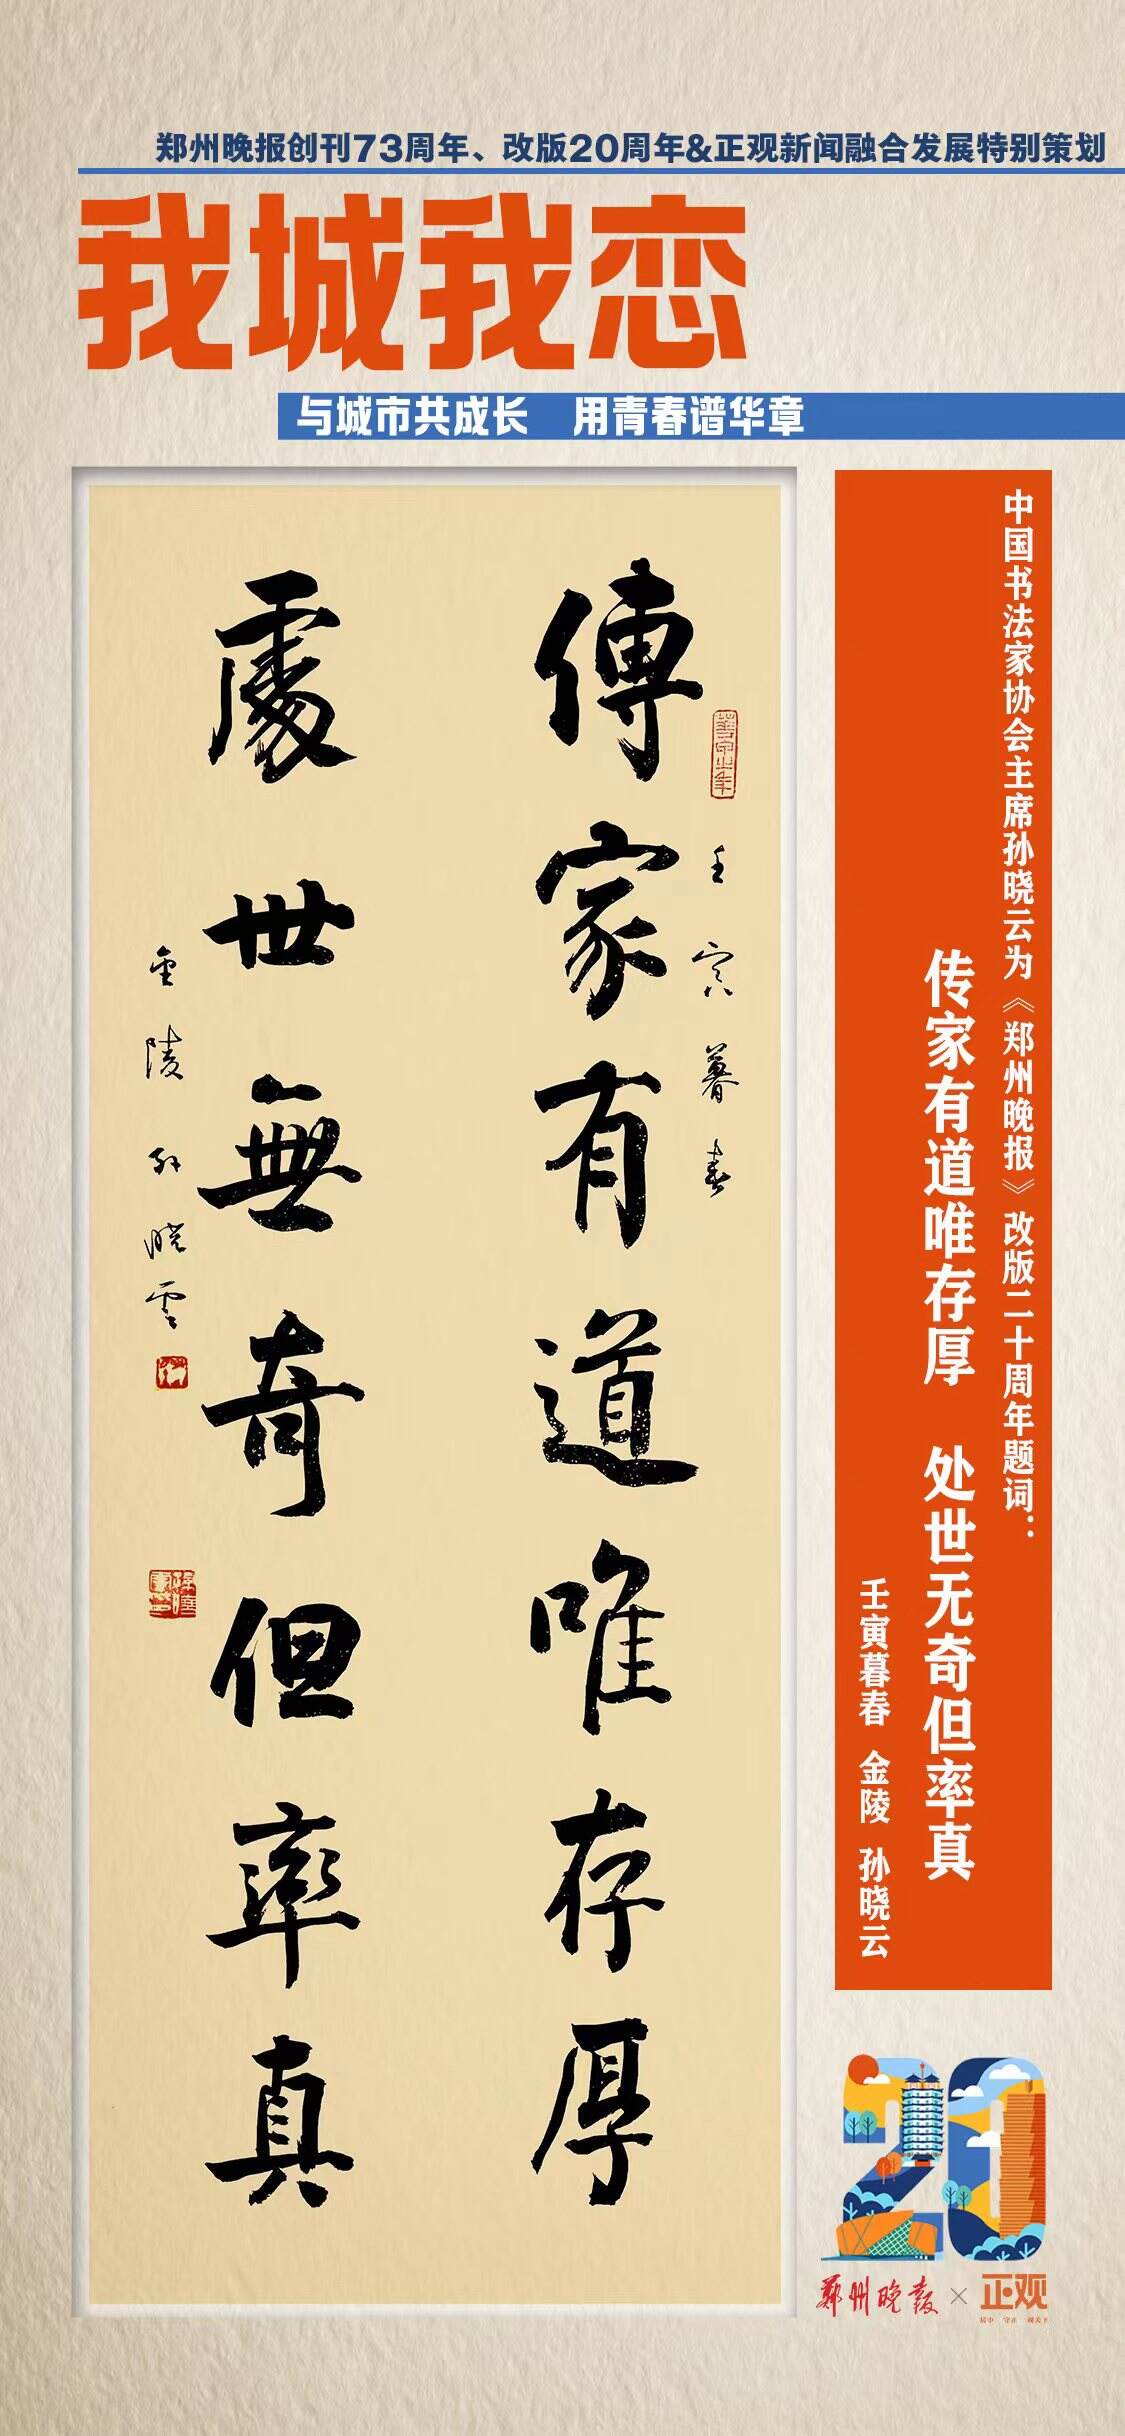 郑州晚报创刊73周年、改版20周年&正观新闻融合发展特别策划
我城我恋
与城市共成长 用青春谱华章
中国书法家协会主席孙晓云为《郑州晚报》改版二十周年题词：
传家有道唯存厚 处世无奇但率真
壬寅暮春 金陵 孙晓云
壬寅暮春
傳家有道唯存厚
處世無奇但率真
金陵 孙晓雲
20
郑州晚报×正观